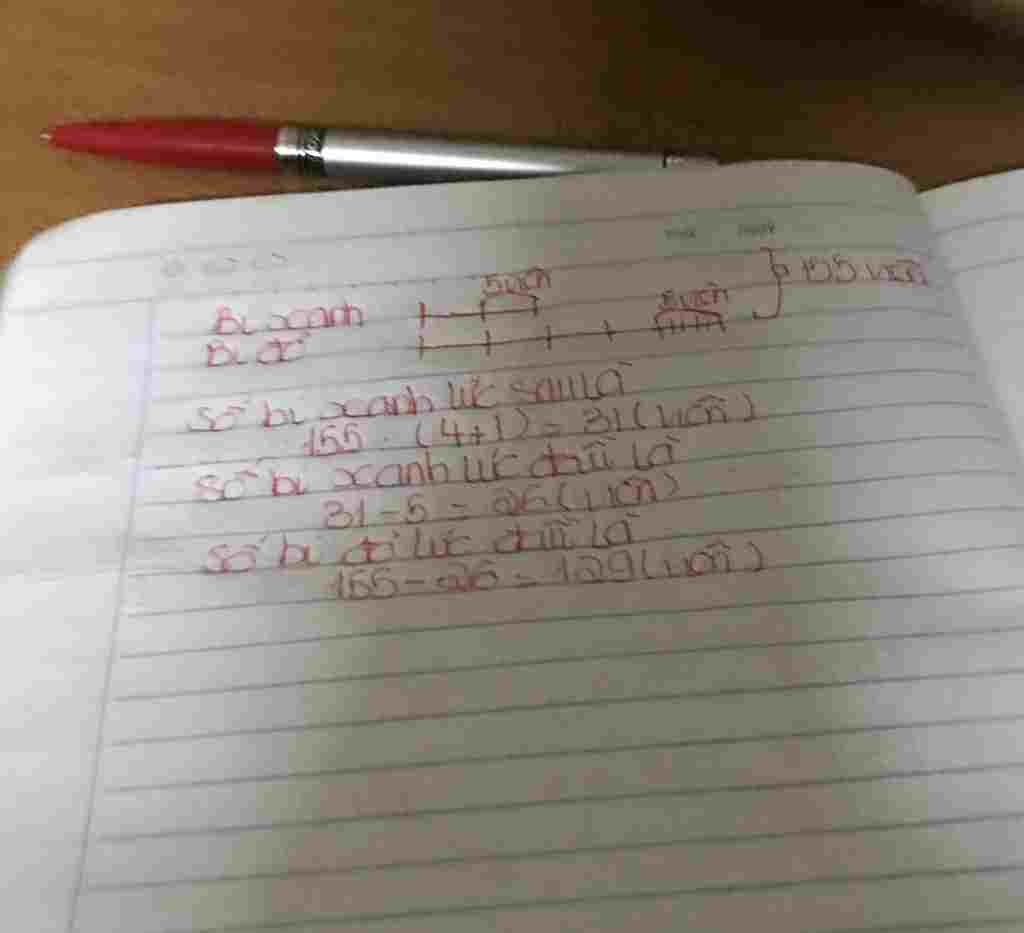 5 viên
Bi xanh 155 viên
Bi đỏ 5 viên
Số bi xanh lúc sau là
155 : (4+1) = 31 (viên)
Số bi xanh lúc đầu là
31 - 5 = 26 (viên)
Số bi đỏ lúc đầu là
155 - 26 = 129 (viên)